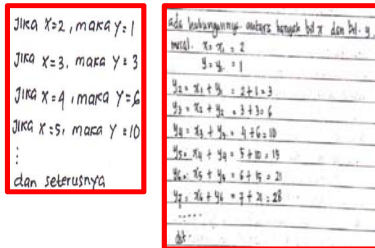 Jika X=2, maka Y=1
Jika X=3, maka Y=3
Jika X=4, maka Y=6
Jika X=5, maka Y=10
⋮
dan seterusnya
ada hubungannya antara banyak bil x dan bil. y.
misal. x = x₁ = 2
y = y₁ = 1
y₂ = x₁ + y₁ = 2+1 = 3
y₃ = x₂ + y₂ = 3+3 = 6
y₄ = x₃ + y₃ = 4+6 = 10
y₅ = x₄ + y₄ = 5+10 = 15
y₆ = x₅ + y₅ = 6+15 = 21
y₇ = x₆ + y₆ = 7+21 = 28
......
dst.